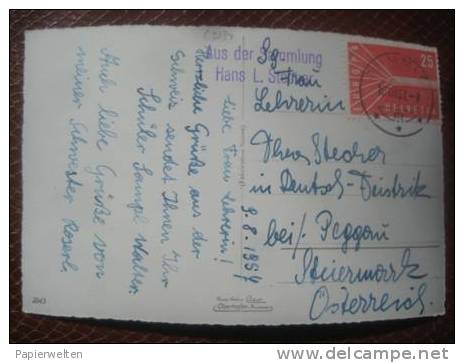 Aus der Sammlung
Hans L.
Sg
Frau
Lehrerin
Thea Stecher
in Deutsch-Feistritz
bei/ Peggau
Steiermark
Österreich.
9.8.1957
Liebe Frau Lehrerin!
Herzliche Grüße aus der
Schweiz sendet Ihnen Ihr
Schüler Walter.
Auch liebe Grüße von
meiner Schwester Roserl.
25
HELVETIA
2043
Papierwelten
©delcampe.net